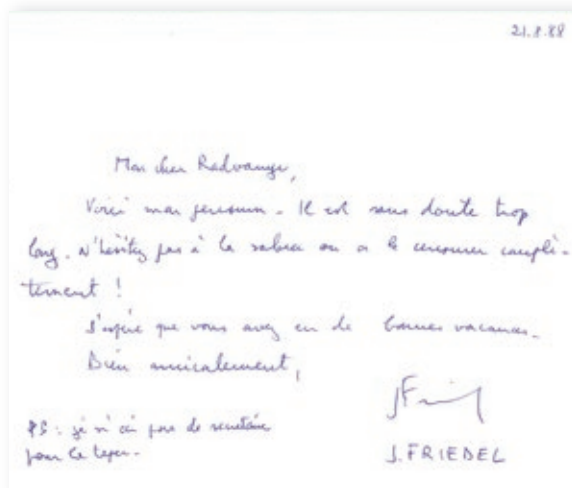 21.8.88
Mon cher Radvanyi,
Voici mon pensum. Il est sans doute trop
long. N'hésitez pas à le sabrer ou à le censurer complè-
tement !
J'espère que vous avez eu de bonnes vacances.
Bien amicalement,
PS : je n'ai pas de secrétaire
pour le taper.
J. FRIEDEL